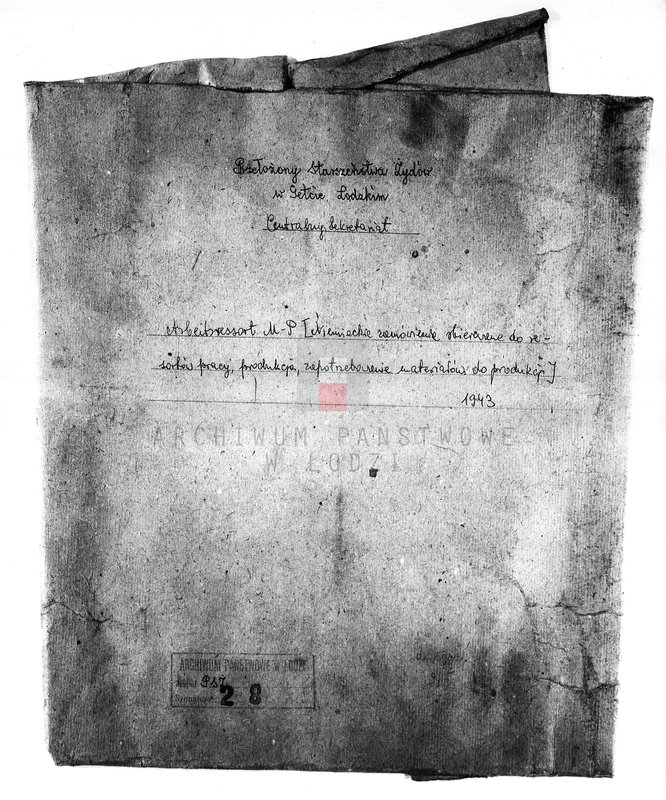 Przełożony Starszeństwa Żydów
w Getcie Łodzkim
Centralny Sekretariat
Arbeitsressort M-P [Niemieckie zamówienia skierowane do re-
sortów pracy, produkcja, zapotrzebowanie materiałów do produkcji]
1943
ARCHIWUM PAŃSTWOWE
W ŁODZI
ARCHIWUM PAŃSTWOWE W ŁODZI
PSŻ
28